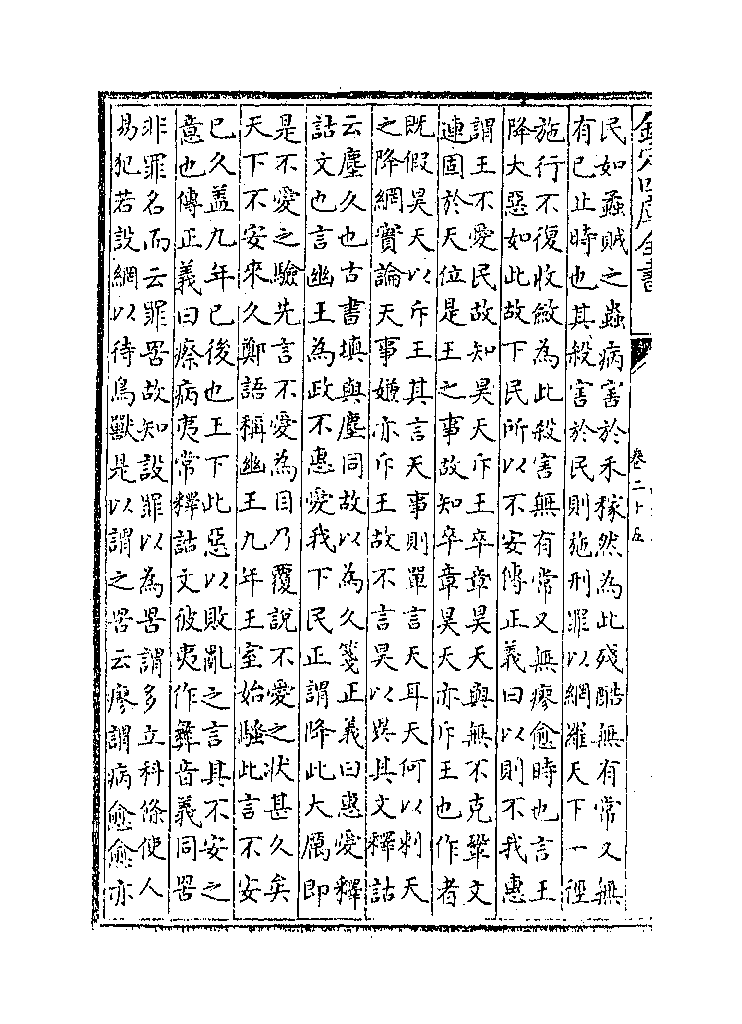 欽定四庫全書
卷二十五
民如蟊賊之蟲病害於禾稼然為此殘酷無有常又無
有已止時也其殺害於民則施刑罪以網羅天下一徑
施行不復收斂為此殺害無有常又無瘳愈時也言王
降大惡如此故下民所以不安傳正義曰以則不我惠
謂王不愛民故知昊天斥王卒章昊天與無不克鞏文
連固於天位是王之事故知卒章昊天亦斥王也作者
既假昊天以斥王其言天事則單言天耳天何以刺天
之降網實論天事嫌亦斥王故不言昊以異其文釋詁
云塵久也古書填與塵同故以為久箋正義曰惠愛釋
詁文也言幽王為政不惠愛我下民正謂降此大厲即
是不愛之驗先言不愛為目乃覆說不愛之狀甚久矣
天下不安來久鄭語稱幽王九年王室始騷此言不安
已久蓋九年已後也王下此惡以敗亂之言其不安之
意也傳正義曰瘵病夷常釋詁文彼夷作彝音義同罟
非罪名而云罪罟故知設罪以為罟謂多立科條使人
易犯若設網以待鳥獸是以謂之罟云瘳謂病愈愈亦